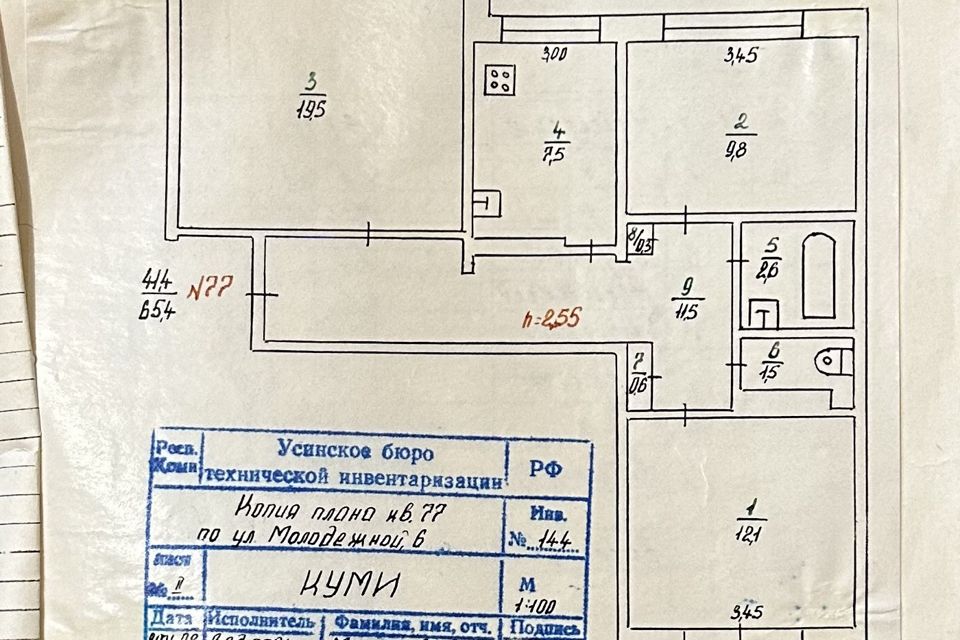 3,00
3,45
3
19,5
4
7,5
2
9,8
8/0,3
5
2,6
41,4
65,4
N77
9
11,5
h=2,55
6
1,5
7
0,6
Респ.
Коми
Усинское бюро
технической инвентаризации
РФ
Копия плана кв. 77
по ул Молодежной, 6
Инв.
№ 144
№ II
КУМИ
М
1:100
1
12,1
3,45
Дата
Исполнитель
Фамилия, имя, отч.
Подпись